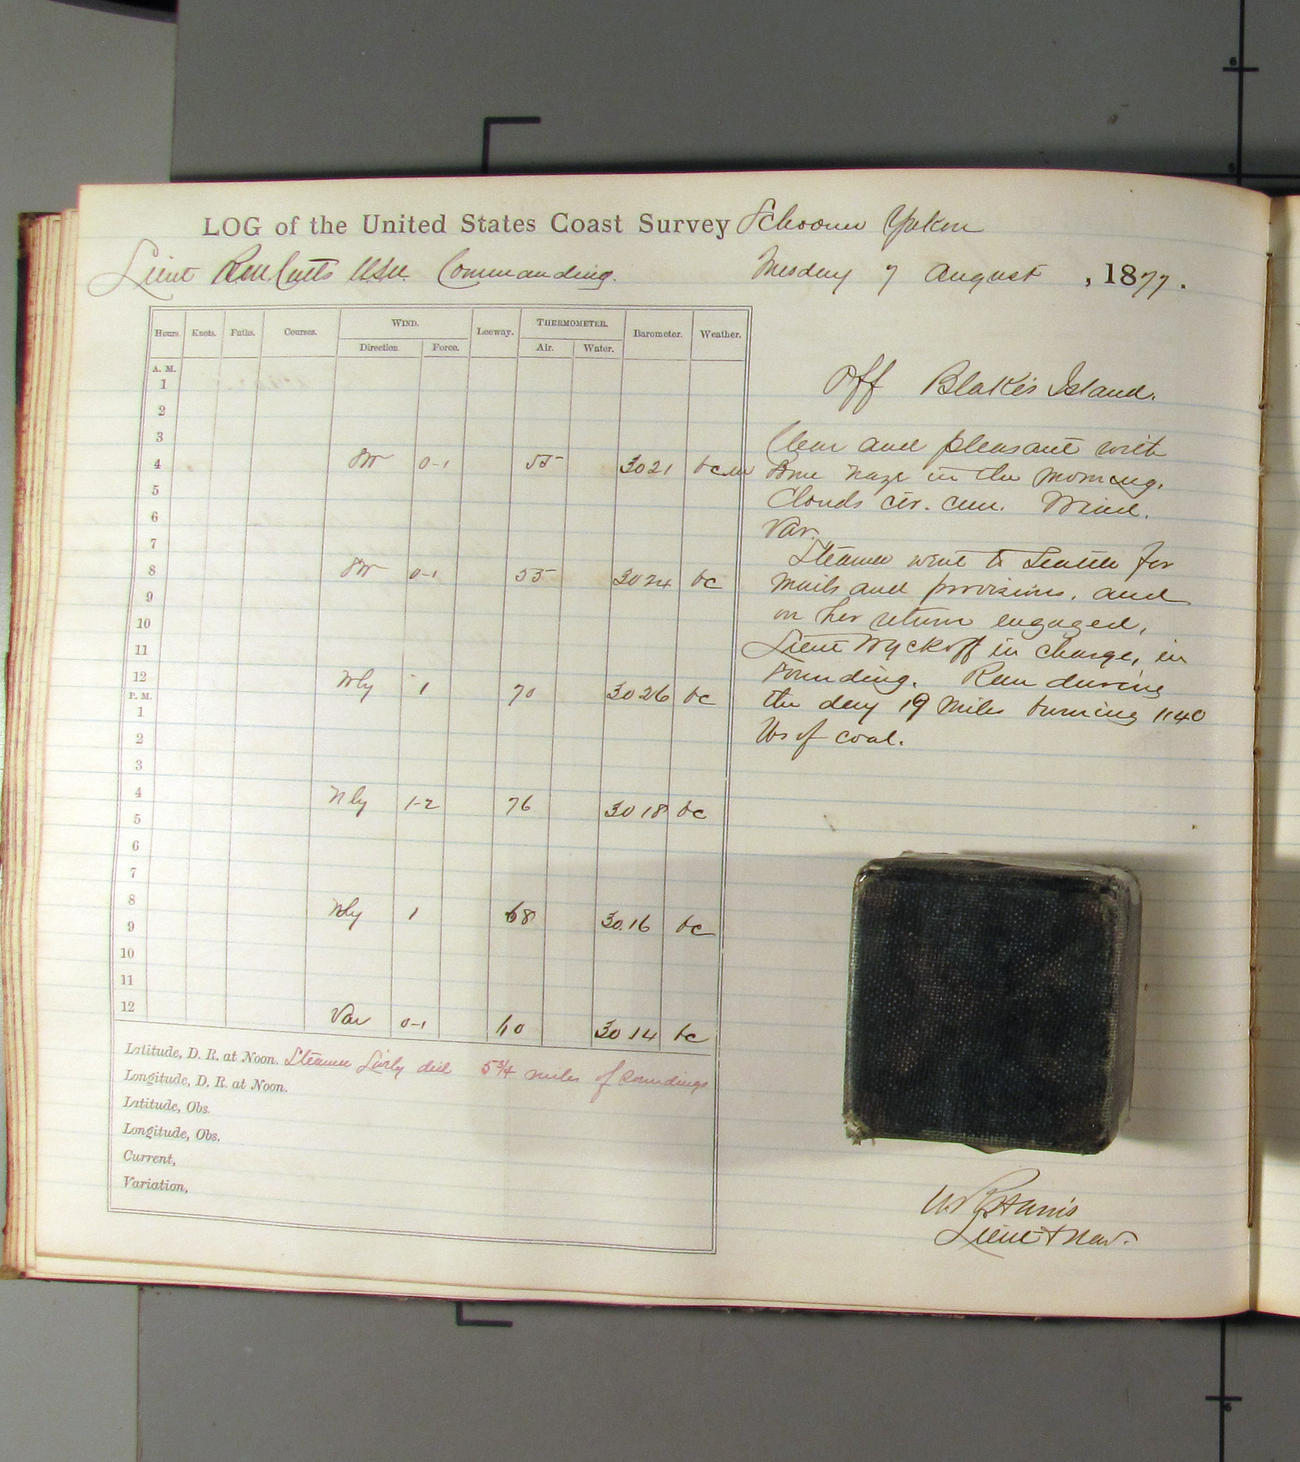 LOG of the United States Coast Survey Schooner Yukon
Lieut R.M. Cutts USN. Commanding. Tuesday 7 August , 1877.
Hours. Knots. Faths. Courses. WIND. Leeway. THERMOMETER. Barometer. Weather.
Direction. Force. Air. Water.
A. M.
1
2
3
4 SW 0-1 55 30 21 bcm
5
6
7
8 SW 0-1 55 30 24 bc
9
10
11
12 Wly 1 70 30 26 bc
P. M.
1
2
3
4 Nly 1-2 76 30 18 bc
5
6
7
8 Nly 1 68 30.16 bc
9
10
11
12 Var 0-1 60 30 14 bc
Latitude, D. R. at Noon. Steamer Lively did 5 3/4 miles of soundings
Longitude, D. R. at Noon.
Latitude, Obs.
Longitude, Obs.
Current,
Variation,
Off Blake's Island.
Clear and pleasant with
some haze in the morning.
Clouds cir. cum. Wind.
Var.
Steamer went to Seattle for
mails and provisions, and
on her return engaged,
Lieut Wyckoff in charge, in
sounding. Run during
the day 19 miles burning 1140
lbs of coal.
Harris
Lieut & Nav.
6
6